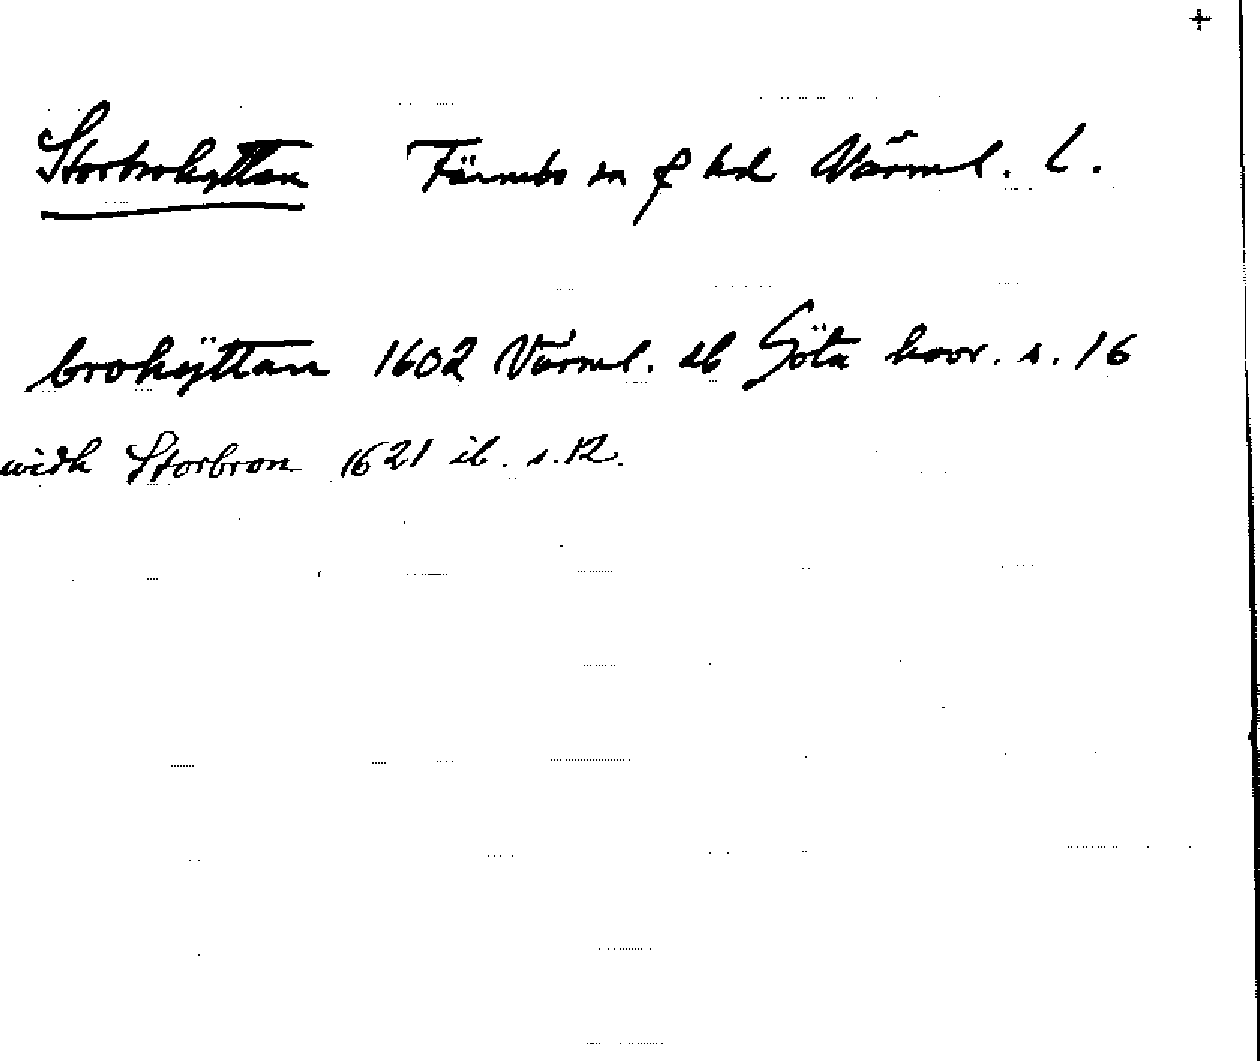 +
Storbrohyttan Färnebo sn o hd Värml. l.
brohÿttan 1602 Värml. db Göta hovr. s. 16
widh Storbron 1621 ib. s. 12.